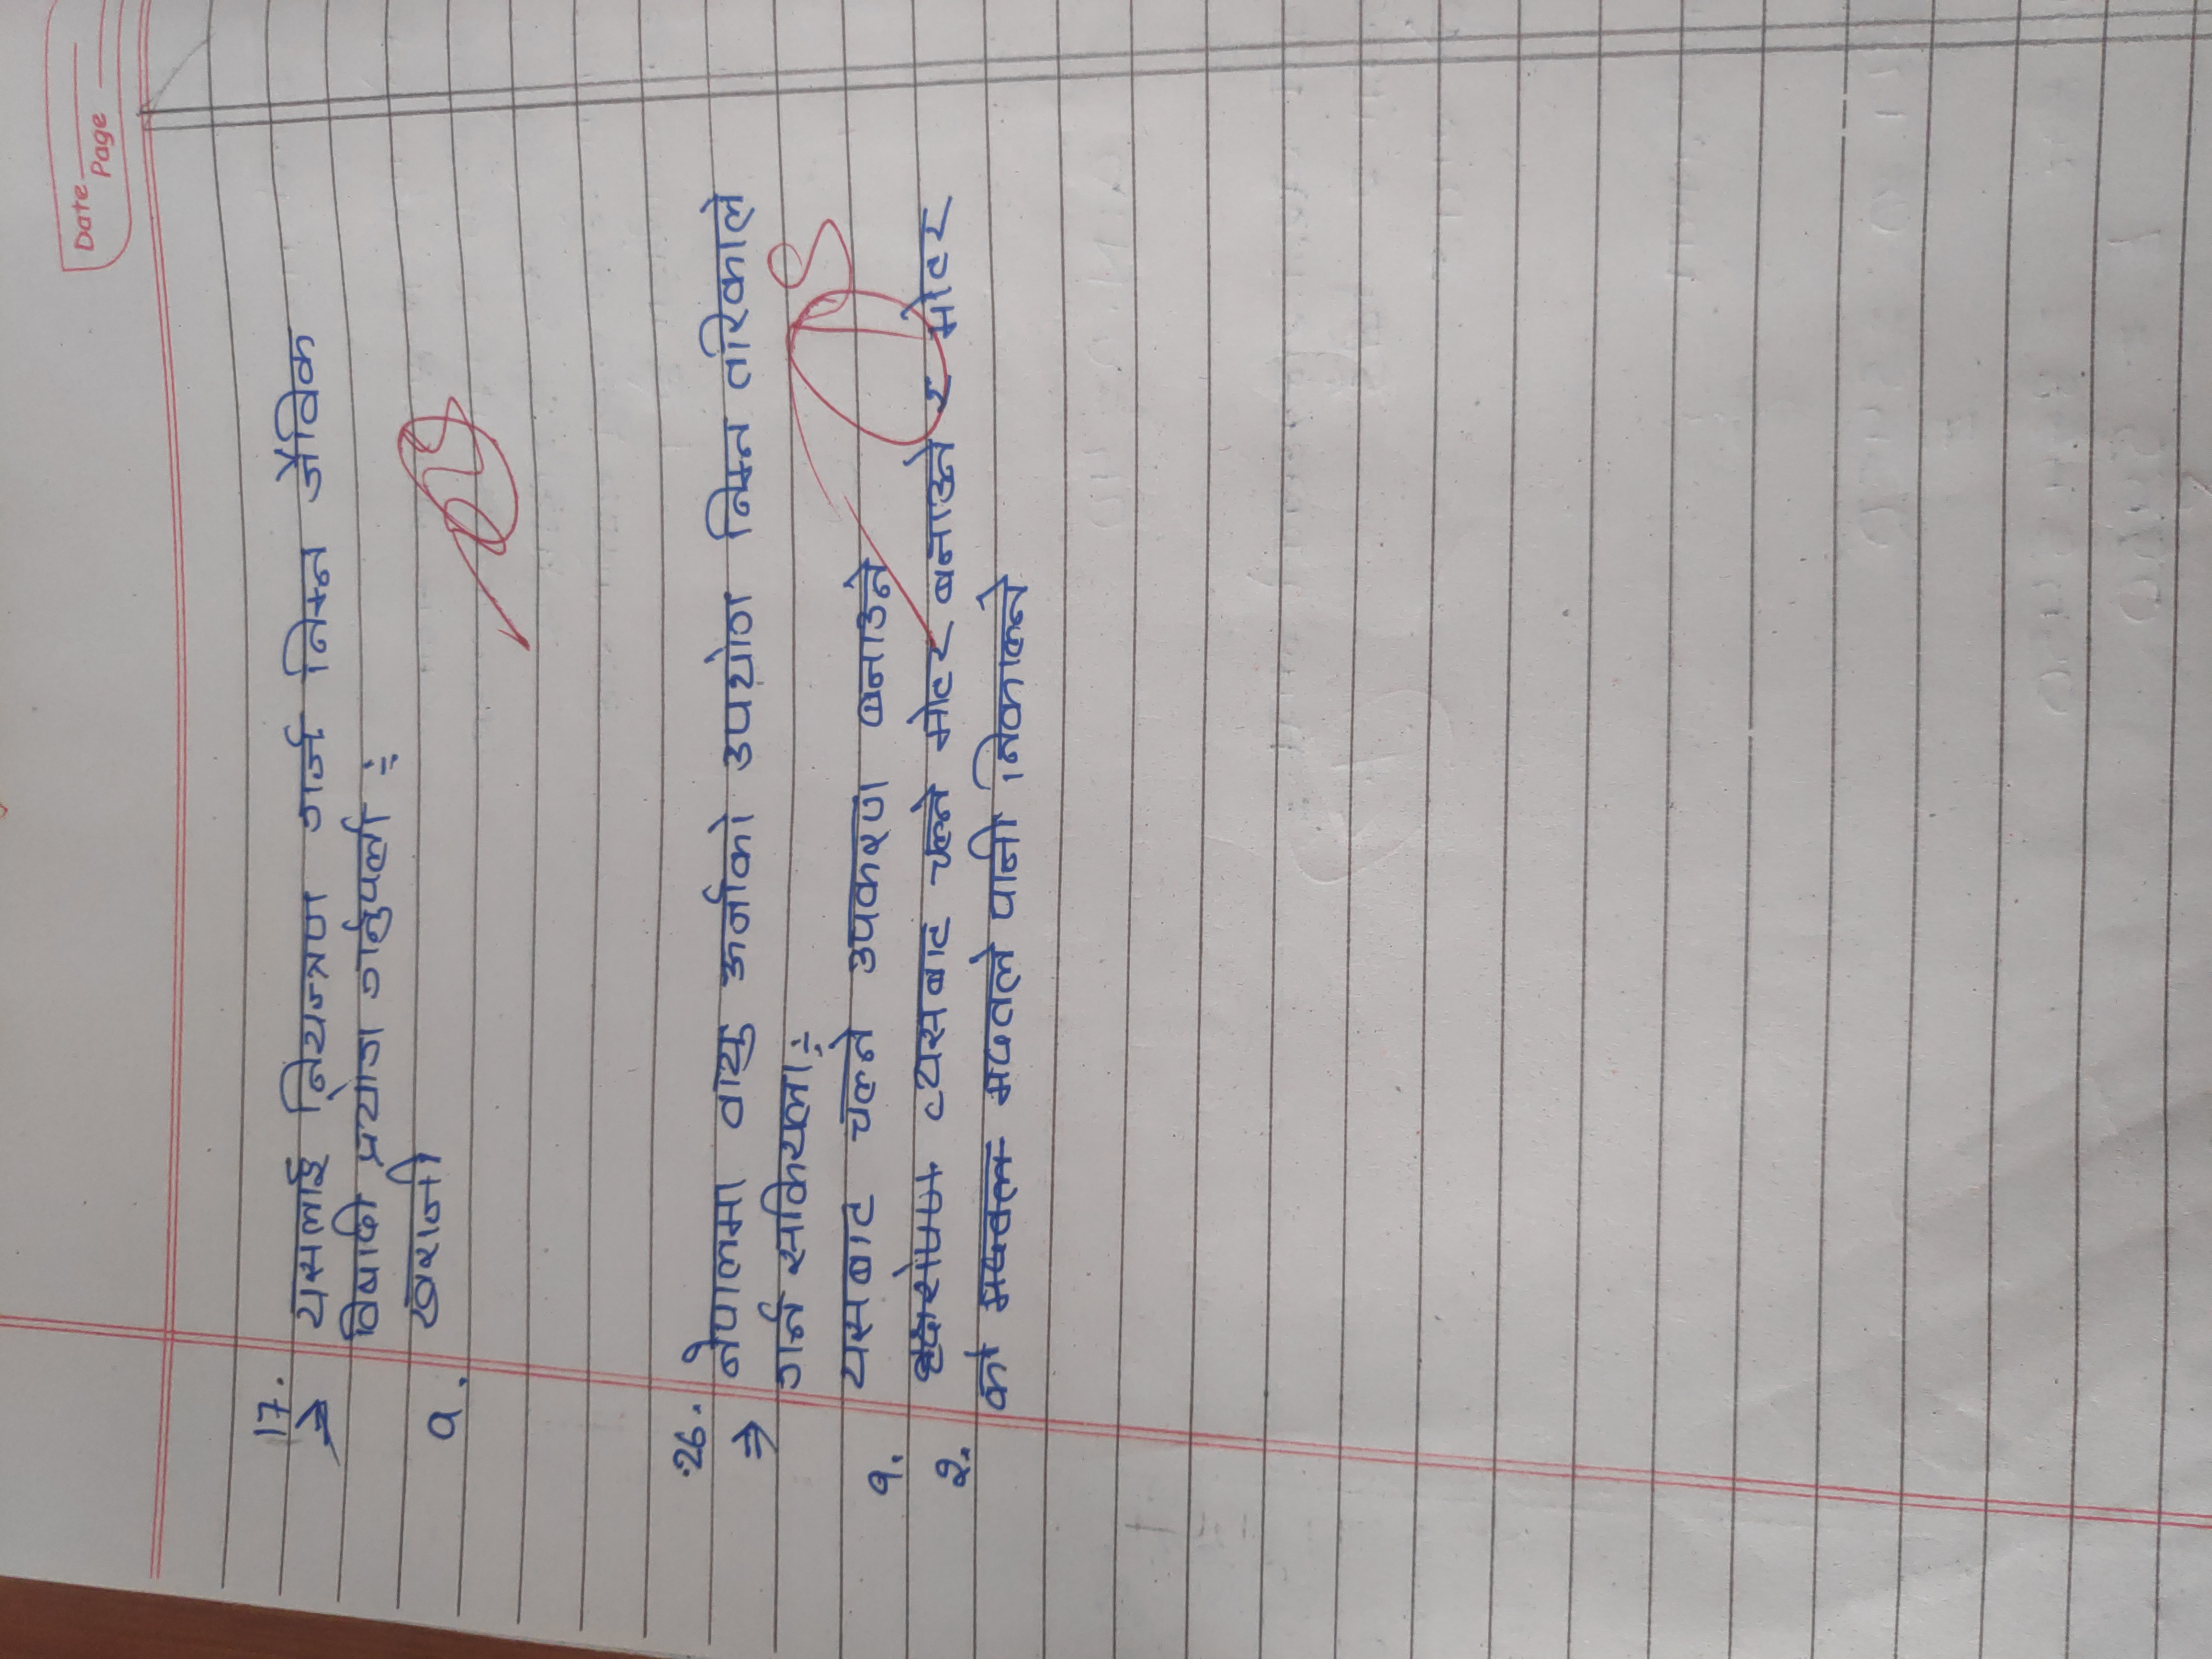 Date
Page
17.
⇒ यसलाई नियन्त्रण गर्न निम्न जैविक
विषादी प्रयोग गर्नुपर्ला ÷
a. खरानी
26. नेपालमा वायु ऊर्जाको उपयोग निम्न तरिकाले
⇒ गर्न सकियला ÷
१. यसबाट चल्ने उपकरण बनाउने
२. यसबाट चल्ने मोटर बनाउने र मोटर
को मदतले पानी निकाल्ने